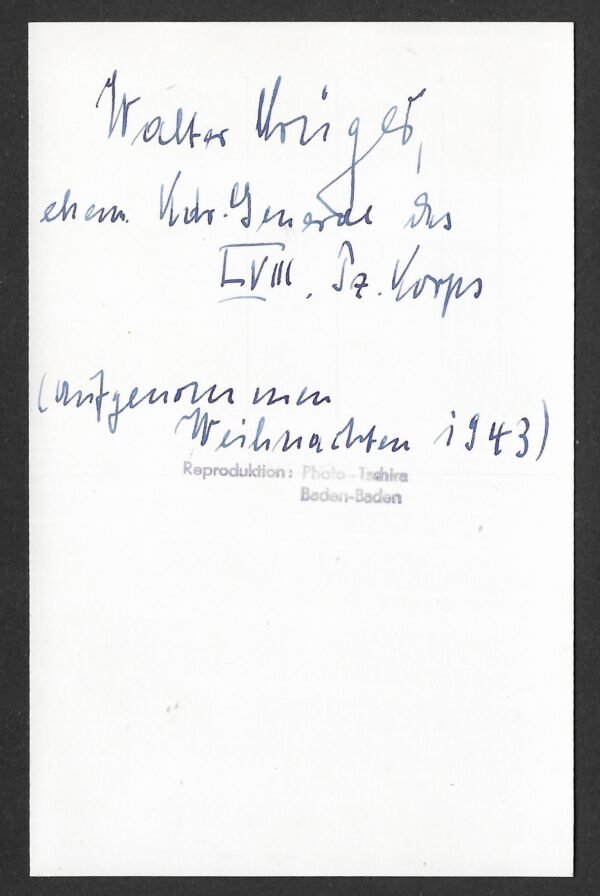 Walter Krüger,
ehem. Kdr. General des
LVIII. Pz. Korps
(aufgenommen
Weihnachten 1943)
Reproduktion: Photo-Tschira
Baden-Baden